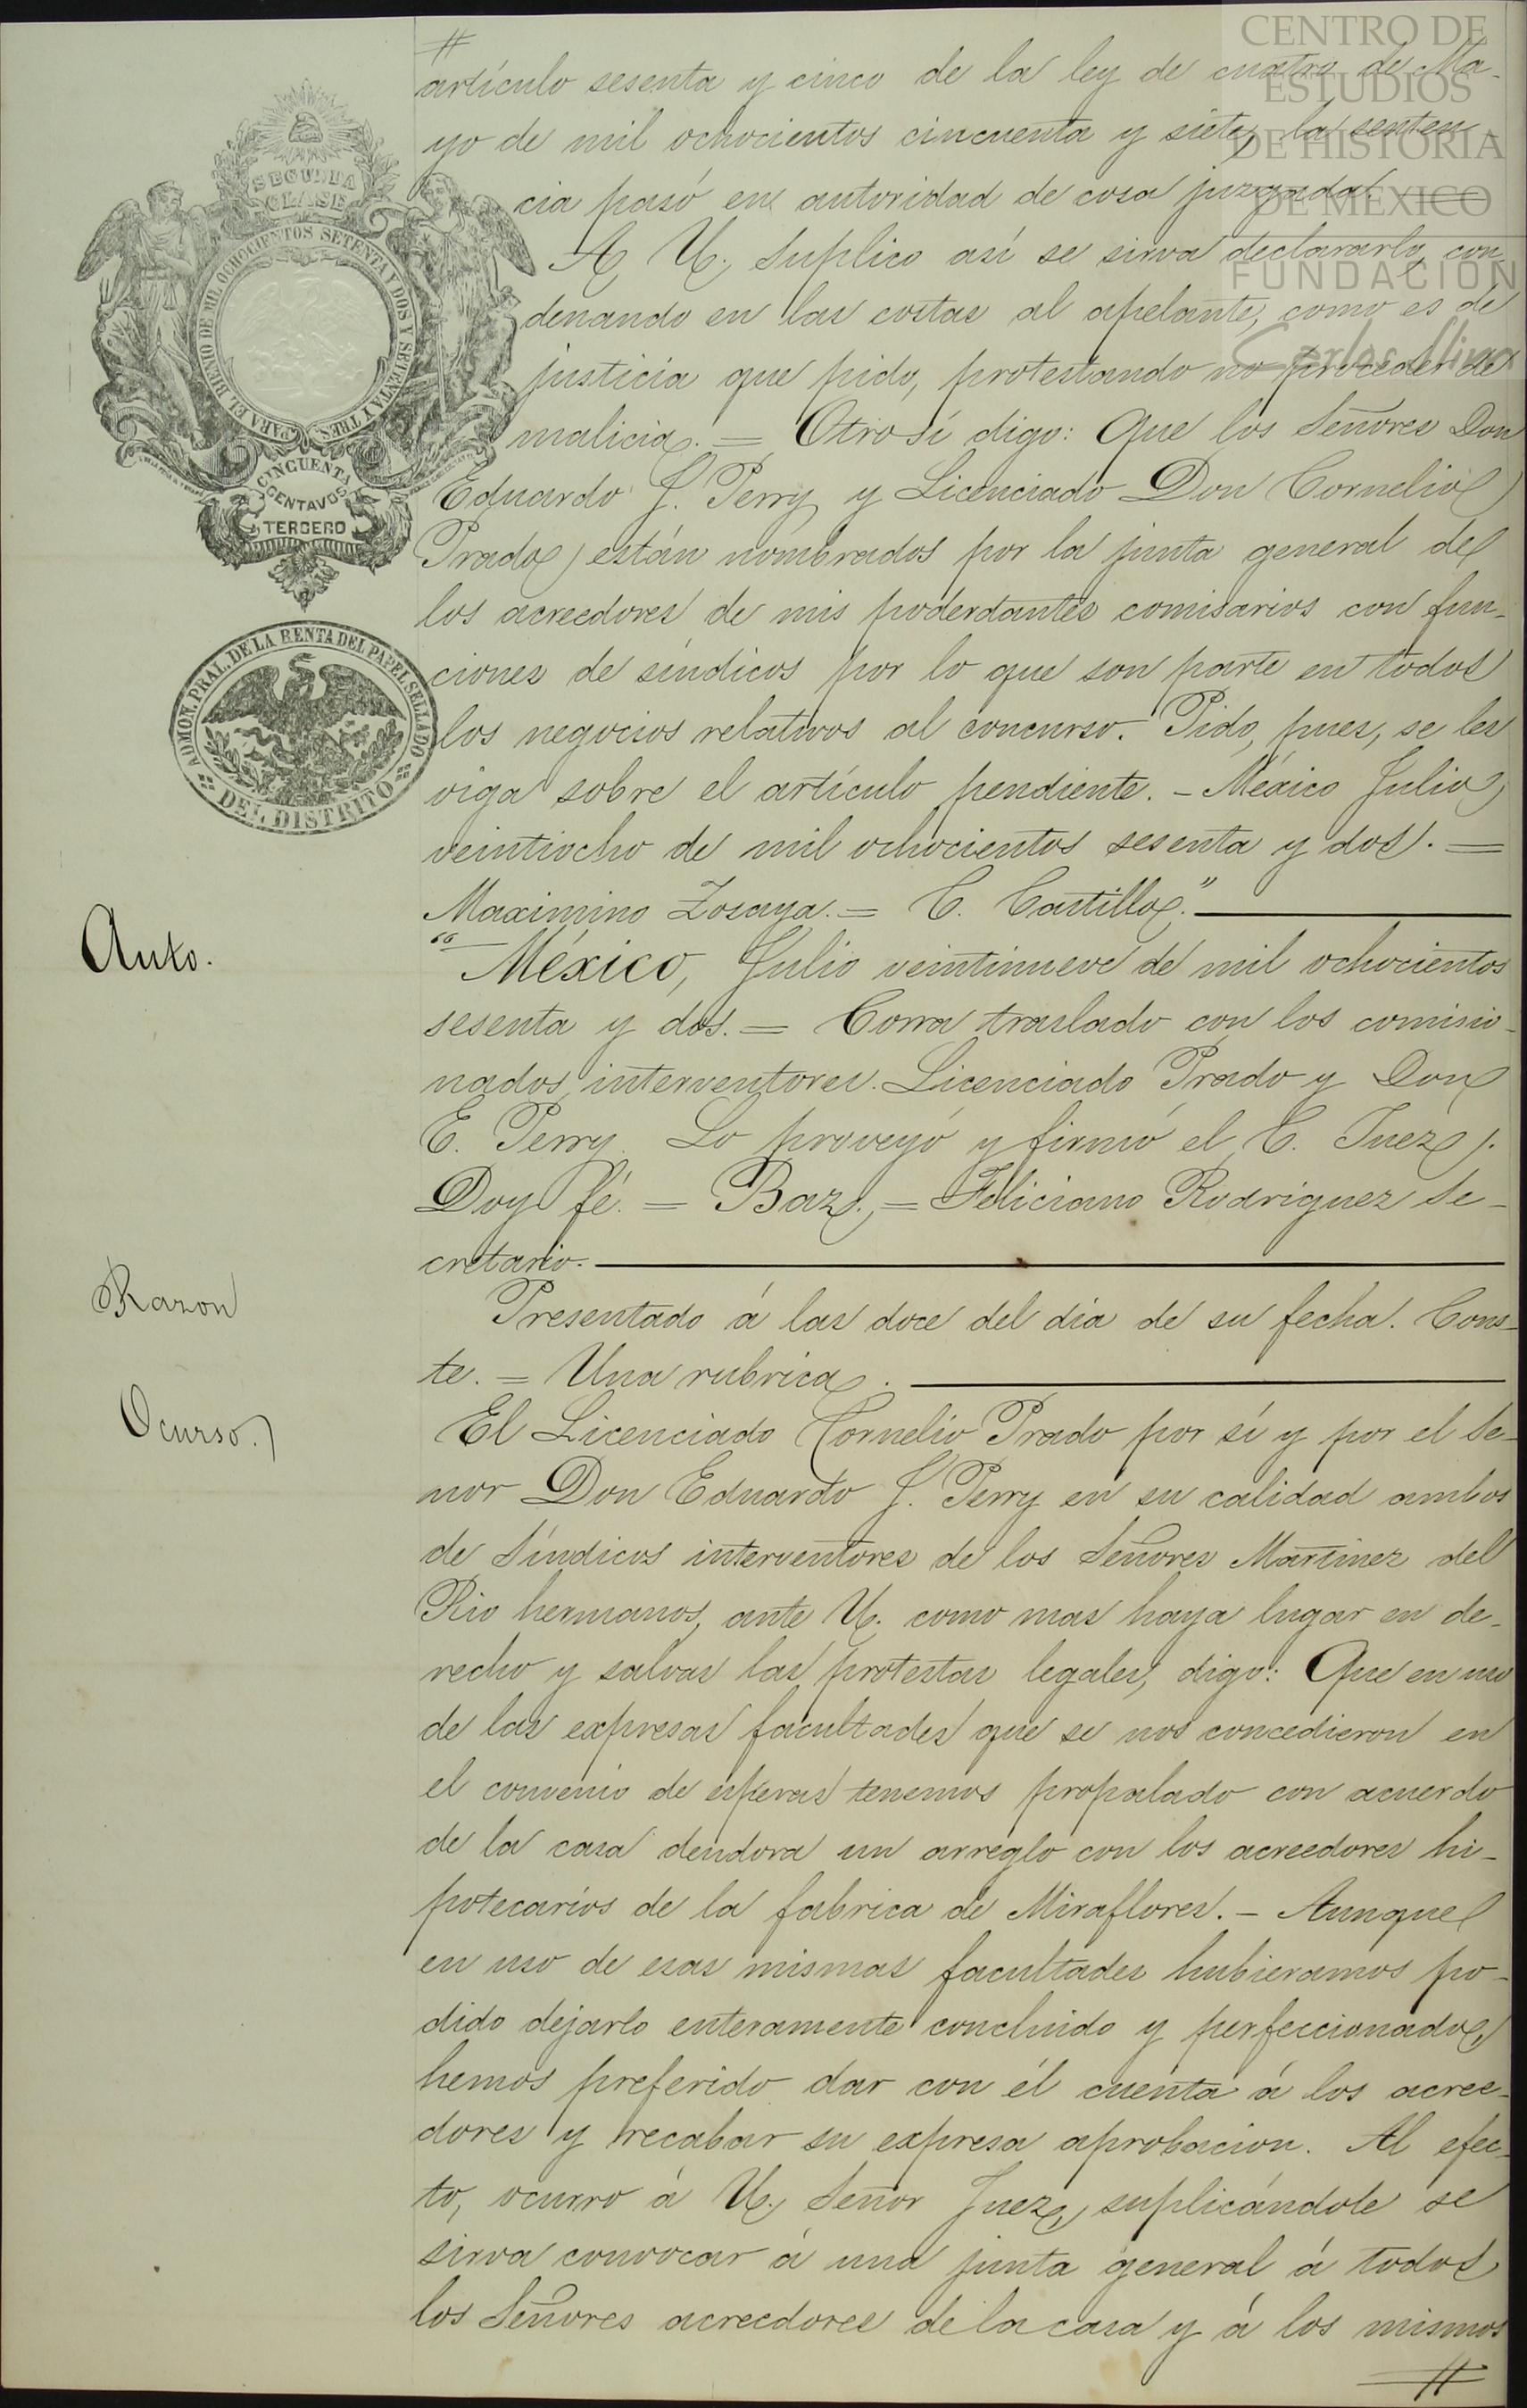 CENTRO DE
ESTUDIOS
DE HISTORIA
DE MÉXICO
FUNDACIÓN
Carlos Slim
SEGUNDA
CLASE
PARA EL BIENIO DE MIL OCHOCIENTOS SETENTA Y DOS Y SETENTA Y TRES.
CINCUENTA
CENTAVOS
TERCERO
ADMON. PRAL. DE LA RENTA DEL PAPEL SELLADO
DEL DISTRITO
#
artículo sesenta y cinco de la ley de cuatro de Ma-
yo de mil ochocientos cincuenta y siete, la senten-
cia pasó en autoridad de cosa juzgada.
A U. Suplico así se sirva declararlo, con-
denando en las costas al apelante, como es de
justicia que pido, protestando no proceder de
malicia. = Otro sí digo: Que los Señores Don
Eduardo J. Perry y Licenciado Don Cornelio
Prado) están nombrados por la junta general de
los acreedores de mis poderdantes comisarios con fun-
ciones de síndicos por lo que son parte en todos
los negocios relativos al concurso. Pido, pues, se les
oiga sobre el artículo pendiente. - México Julio
veintiocho de mil ochocientos sesenta y dos. =
Maximino Zosaya. = C. Castillo."
Auto.
"México, Julio veintinueve de mil ochocientos
sesenta y dos. = Corra traslado con los comisio-
nados interventores. Licenciado Prado y Don
E. Perry. Lo proveyó y firmó el C. Juez.
Doy fé. = Baz. = Feliciano Rodriguez Se-
cretario.
Razon
Presentado á las doce del día de su fecha. Cons-
te. = Una rubrica.
Ocurso.
El Licenciado Cornelio Prado por sí y por el Se-
nor Don Eduardo J. Perry en su calidad ambos
de Síndicos interventores de los Señores Martinez del
Rio hermanos, ante U. como mas haya lugar en de-
recho y salvas las protestas legales, digo: Que en uso
de las expresas facultades que se nos concedieron en
el convenio de esperas tenemos propalado con acuerdo
de la casa deudora un arreglo con los acreedores hi-
potecarios de la fabrica de Miraflores. - Aunque
en uso de esas mismas facultades hubieramos po-
dido dejarlo enteramente concluido y perfeccionado,
hemos preferido dar con él cuenta á los acree-
dores y recabar su expresa aprobacion. Al efec-
to, ocurro á U. Señor Juez, suplicándole se
sirva convocar á una junta general á todos
los Señores acreedores de la casa y á los mismos
#